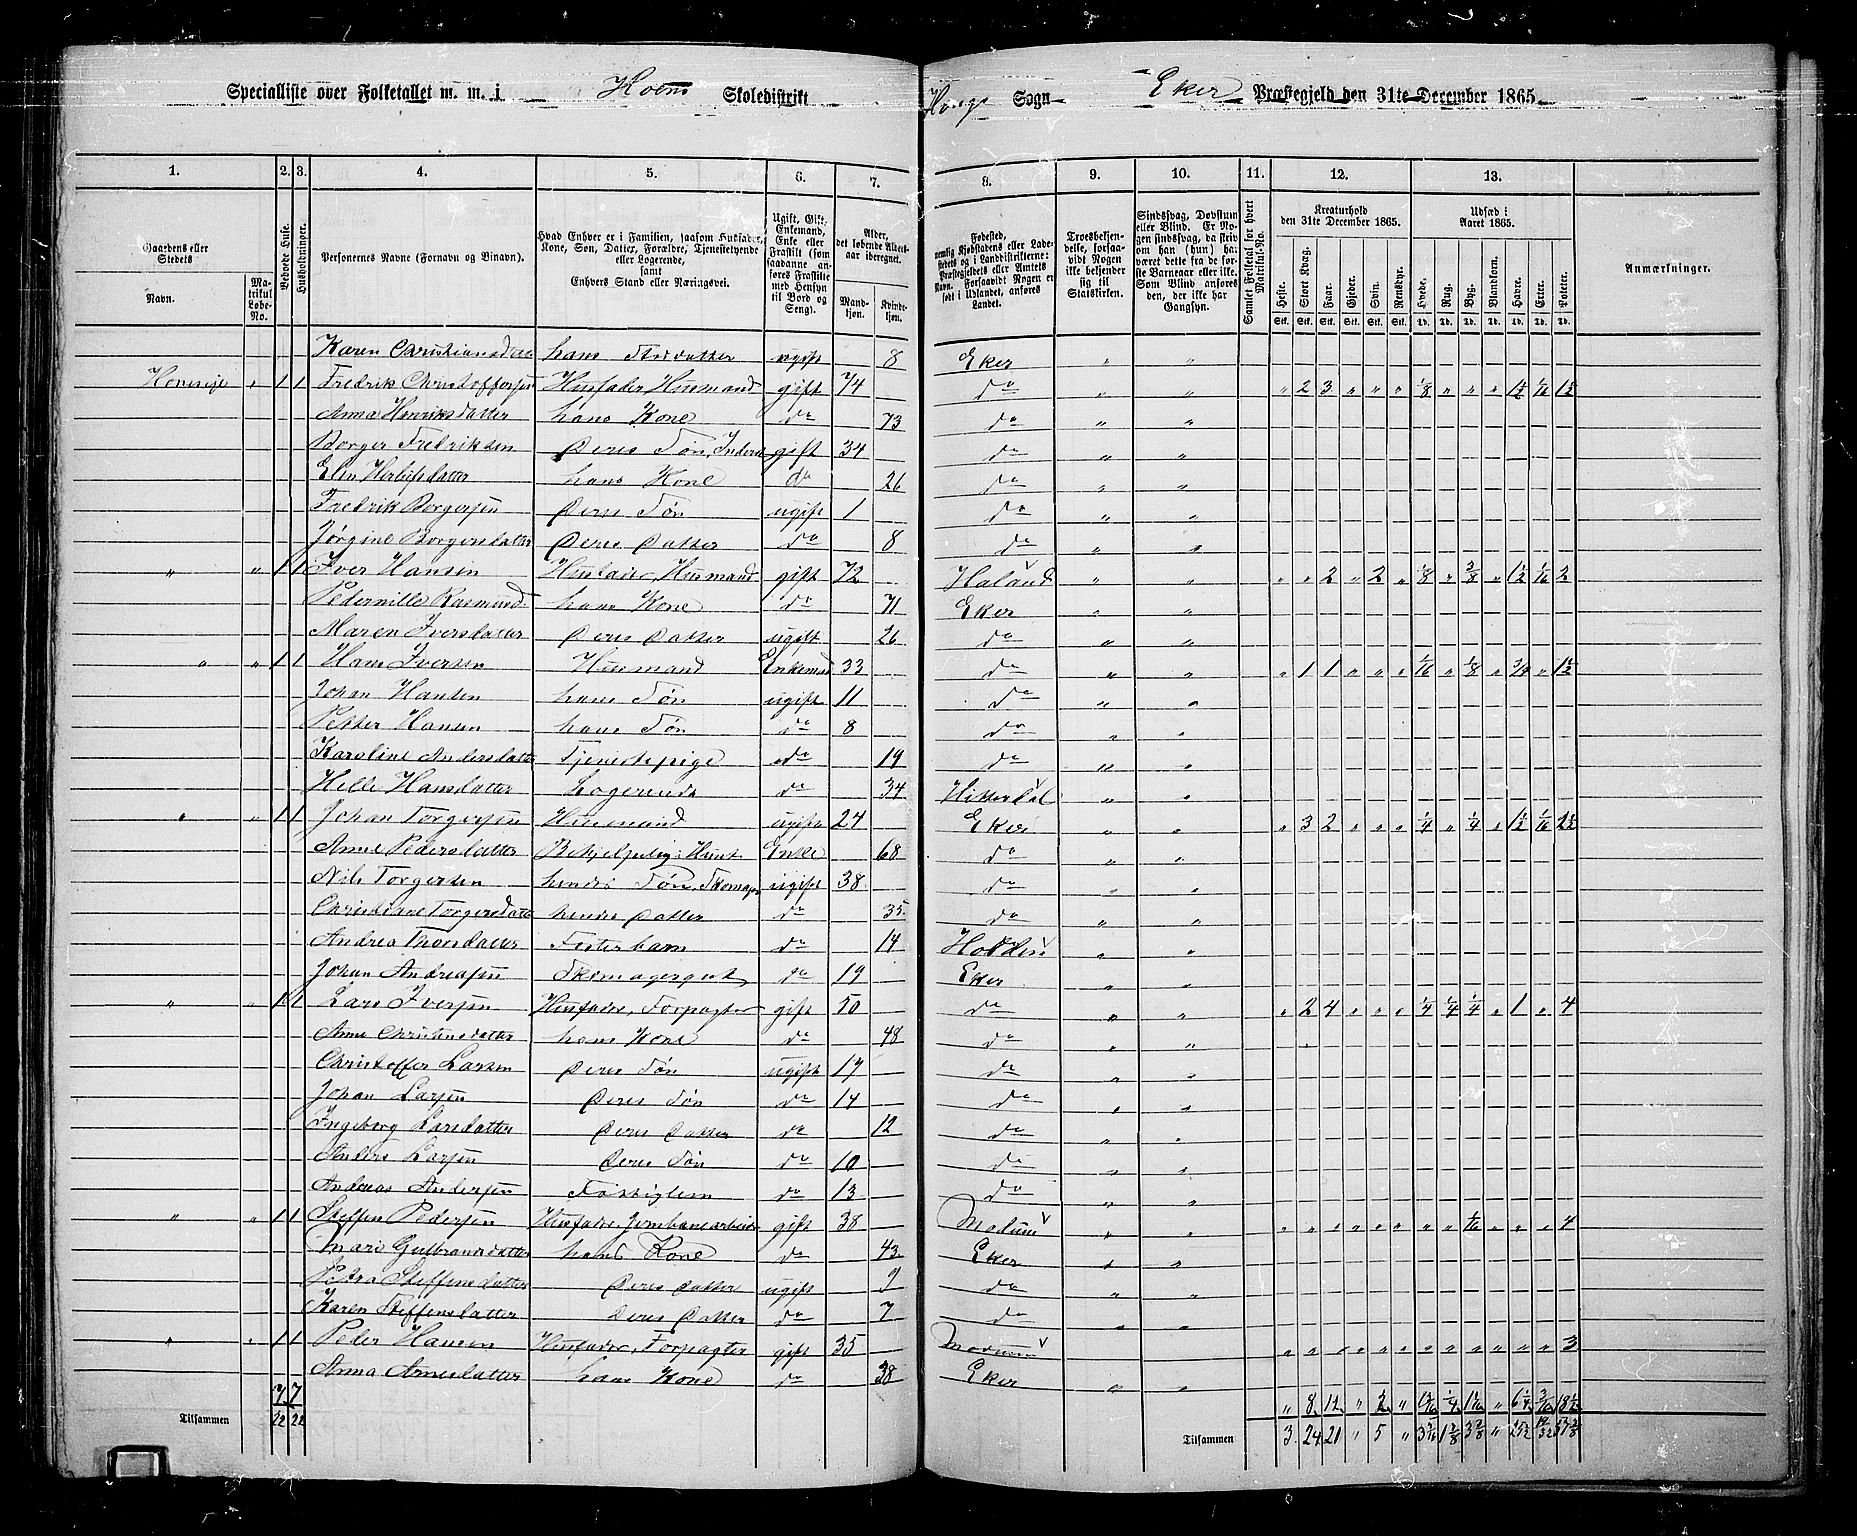 Specialliste over Folketallet m. m. i Hoens Skoledistrikt Haugs Sogn Eker Præstegjeld den 31te December 1865
1. 2. 3. 4. 5. 6. 7. 8. 9. 10. 11. 12. 13.
Gaardens eller Stedets Navn. Matrikul Løbe-No.
Beboede Huse. Husholdninger.
Personernes Navne (Fornavn og Binavn).
Hvad Enhver er i Familien, saasom Husfader, Kone, Søn, Datter, Forældre, Tjenestetyende eller Logerende, samt Enhvers Stand eller Næringsvei.
Ugift, Gift, Enkemand, Enke eller Fraskilt (som saadanne anføres Fraskilte med Hensyn til Bord og Seng).
Alder, det løbende Alders-aar iberegnet. Mand-kjøn. Kvinde-kjøn.
Fødested,
Troesbekjendelse, forsaavidt Nogen ikke bekjender sig til Statskirken.
Sindssvag, Døvstum eller Blind.
Samlet Folketal for hvert Matrikul-No.
Kreaturhold den 31te December 1865. Heste. Stort Kvæg. Faar. Gjeder. Sviin. Rensdyr.
Udsæd i Aaret 1865. Hvede. Rug. Byg. Blandkorn. Havre. Erter. Poteter.
Anmærkninger.
Karen Christiansdatter hans Datter ugift 8 Eker " "
Hoenseje " 1 1 Fredrik Christoffersen Husfader Husmand gift 74 do " 2 3 " " " 1/8 " " " 1 1/2 1/16 1 1/2
Anna Henriksdatter hans Kone do 73 do " "
Borger Fredriksen Deres Søn, Inderst gift 34 do " "
Elen hans Kone do 26 do " "
Fredrik Borgersen Deres Søn ugift 1 do " "
Jørgine Borgersdatter Deres Datter do 8 do " "
" " 1 1 Iver Hansen Husfader, Husmand gift 72 Haland " " " " 2 " 2 " 1/8 " 3/8 " 1 1/2 1/16 2
Pedernille Rasmusd hans Kone do 71 Eker " "
Maren Iversdatter Deres Datter ugift 26 do " "
" " 1 1 Hans Iversen Husmand Enkemd 33 do " " " 1 1 " " " 1/16 " 1/8 " 3/4 " 1 1/2
Johan Hansen hans Søn ugift 11 do " "
Petter Hansen hans Søn do 8 do " "
Karoline Andersdatter Tjenestepige do 19 do " "
Helle Hansdatter Logerende do 34 Hitterdal " "
" " 1 1 Johan Torgersen Husmand ugift 24 Eker " " " 3 2 " " " 1/4 " 1/4 " 1 1/2 1/16 2 1/2
Anne Pedersdatter Enke 68 do " "
Nils Torgersen hendes Søn, Skomager ugift 38 do " "
Christiane Torgersdatter hendes Datter do 35 do " "
Andrea Thorsdatter Fosterbarn do 14 Holden " "
Johan Andreasen Skomagergut do 19 Eker " "
" " 1 1 Lars Iversen Husfader, Forpagter gift 50 do " " " 2 4 " " " 1/4 1/4 1/4 " 1 " 4
Anne Christensdatter hans Kone do 48 do " "
Christoffer Larsen Deres Søn ugift 19 do " "
Johan Larsen Deres Søn do 14 do " "
Ingeborg Larsdatter Deres Datter do 12 do " "
Anders Larsen Deres Søn do 10 do " "
Andreas Andersen Fattiglem do 13 do " "
" " 1 1 Steffen Pedersen Husfader, Jernbanearbeider gift 38 Modum " " " " " " " " " " 1/16 " " " 4
Mari Gulbrandsdatter hans Kone do 43 Eker " "
Petra Steffensdatter Deres Datter ugift 9 do " "
Karen Steffensdatter Deres Datter do 7 do " "
" " 1 1 Peder Hansen Husfader, Forpagter gift 35 Modum " " " " " " " " " " " " 3
Anna Arnesdatter hans Kone do 38 Eker " "
7 7 " 8 12 " 2 "
Tilsammen 22 22 Tilsammen 3 24 21 " 5 "